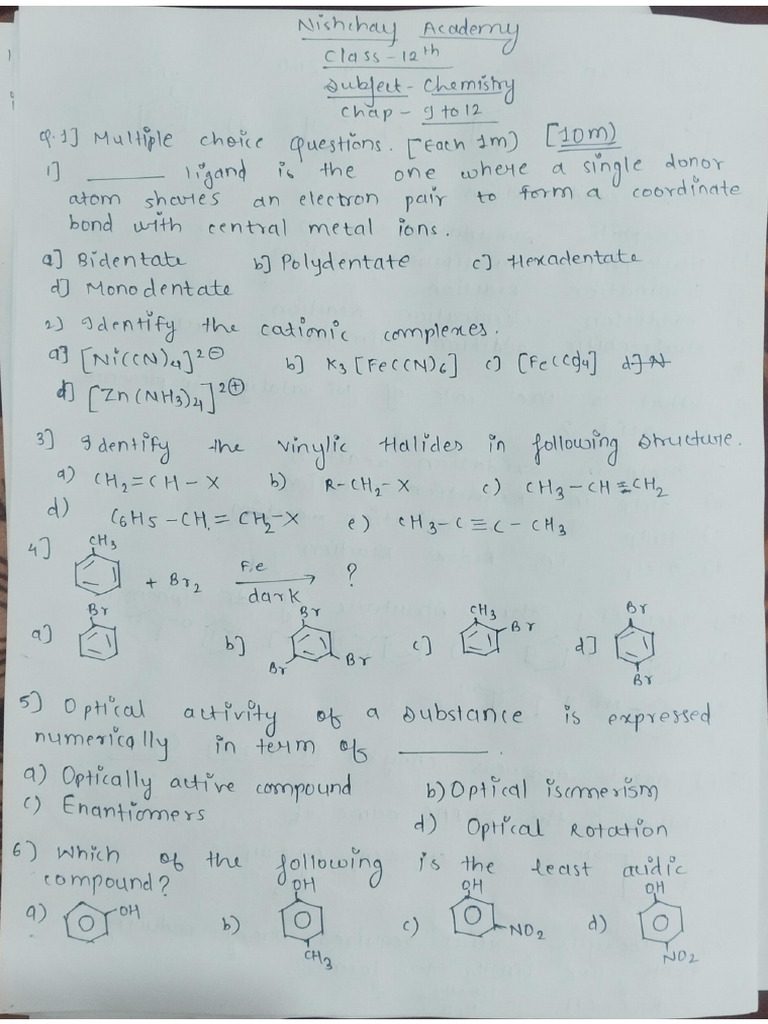 Nishchay Academy
Class - 12th
Subject - Chemistry
Chap - 9 to 12
Q.1] Multiple choice Questions. [Each 1m) [10m)
1] ______ ligand is the one where a single donor
atom shares an electron pair to form a coordinate
bond with central metal ions.
a] Bidentate b] Polydentate c] Hexadentate
d] Monodentate
2) Identify the cationic complexes.
a] [Ni(CN)4]2⊖ b] K3[Fe(CN)6] c] [Fe(CO)4]
d] [Zn(NH3)4]2⊕
3] Identify the vinylic Halides in following structure.
a) CH2=CH-X b) R-CH2-X c) CH3-CH=CH2
d) C6H5-CH=CH2-X e) CH3-C≡C-CH3
4] CH3 + Br2 Fe dark → ?
a] Br b] Br Br Br c] CH3 Br d] Br Br
5) Optical activity of a substance is expressed
numerically in term of ______.
a) Optically active compound b) Optical isomerism
c) Enantiomers
d) Optical Rotation
6) Which of the following is the least acidic
compound?
a) OH b) OH CH3 c) OH NO2 d) OH NO2